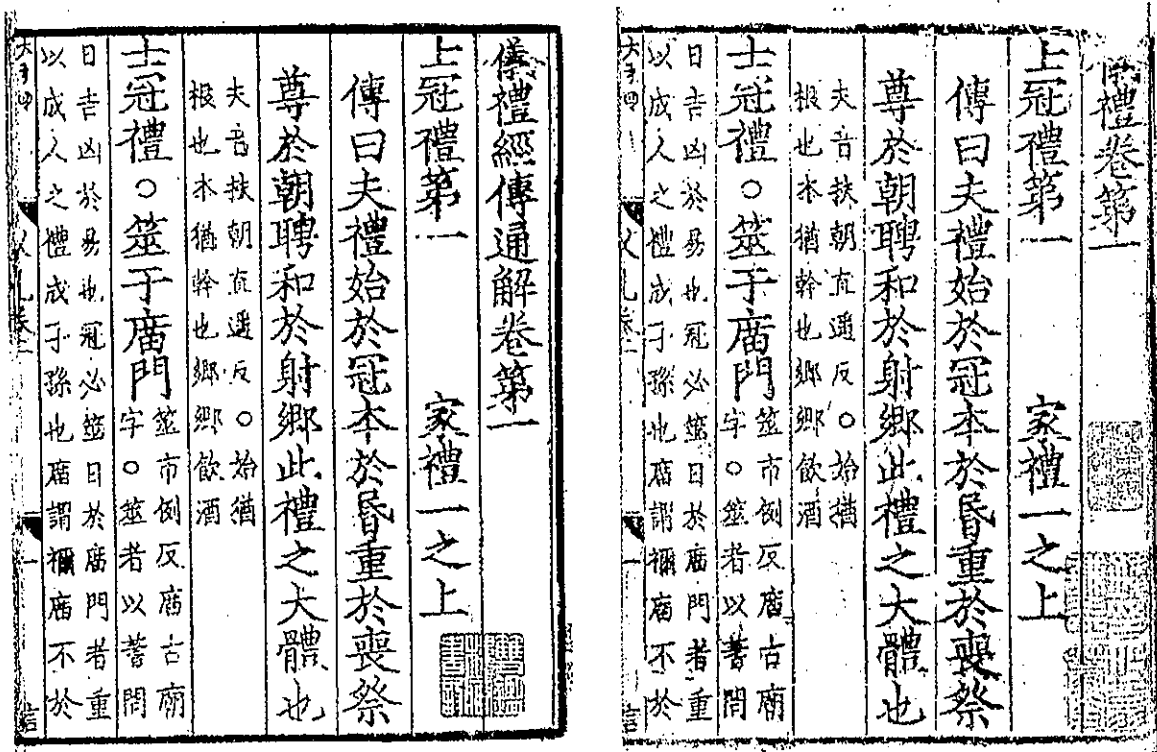 儀禮經傳通解卷第一
士冠禮第一　家禮一之上
傳曰夫禮始於冠本於昬重於喪祭
尊於朝聘和於射鄉此禮之大體也
夫音扶朝直遥反○始猶
根也本猶幹也鄉鄉飲酒
士冠禮○筮于庿門
筮市例反庿古廟
字○筮者以蓍問
日吉凶於易也冠必筮日於庿門者重
以成人之禮成子孫也庿謂禰庿不於
儀禮卷第一
士冠禮第一　家禮一之上
傳曰夫禮始於冠本於昬重於喪祭
尊於朝聘和於射鄉此禮之大體也
夫音扶朝直遥反○始猶
根也本猶幹也鄉鄉飲酒
士冠禮○筮于庿門
筮市例反庿古廟
字○筮者以蓍問
日吉凶於易也冠必筮日於庿門者重
以成人之禮成子孫也庿謂禰庿不於